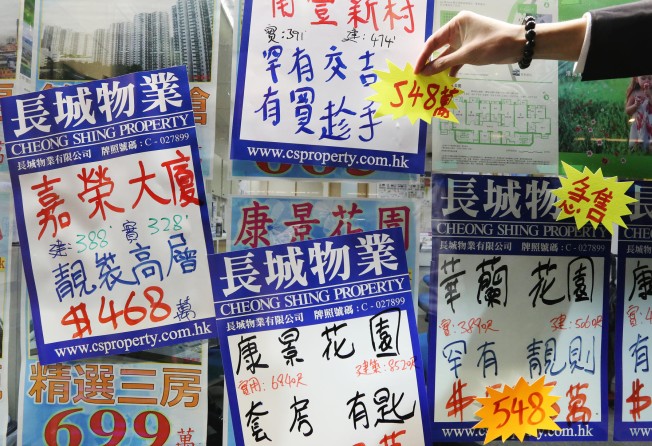 長城物業
CHEONG SHING PROPERTY
長城物業有限公司 牌照號碼：C - 027899
嘉榮大廈
建 388' 實 328'
靚裝高層
$468萬
www.csproperty.com.hk
精選三房
699萬
南豐新村
實：391' 建：474'
罕有交吉
有買趁手
548萬
www.csproperty.com.hk
康景花園
長城物業
CHEONG SHING PROPERTY
長城物業有限公司 牌照號碼：C - 027899
康景花園
實用：694呎 建築：852呎
套房有匙
萬
長城物業
CHEONG SHING PROPERTY
長城物業有限公司 牌照號碼：C - 027899
急售
華蘭花園
罕有靚則
$548萬
www.csproperty.com.hk
康
實